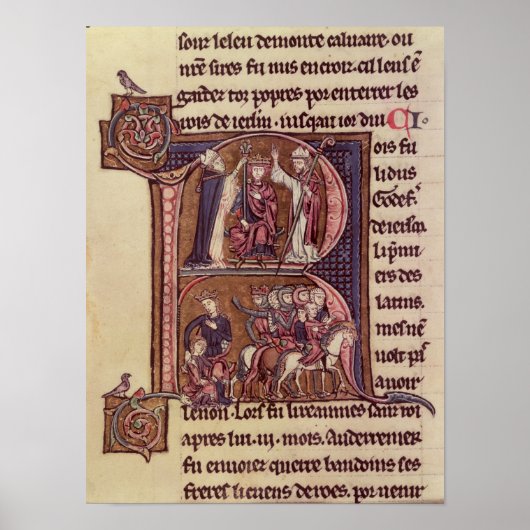 sour leleu demonte caluaire. ou
nr̄e sires fu mis encroiz. cil leus ē
gardez toz propres por enterrer les
rois de ierl̄m. iusqau ior dui CI.
ois fu
li dus
Godef'.
de ierl̄m
li p̄mi
ers des
latins.
mes nē
uolt
auoir
le non. Lors fu li sanz roi
apres lui .iii. mois. Au derrenier
fu enuoier querre baudoins ses
freres li cuens de roes. por uenir